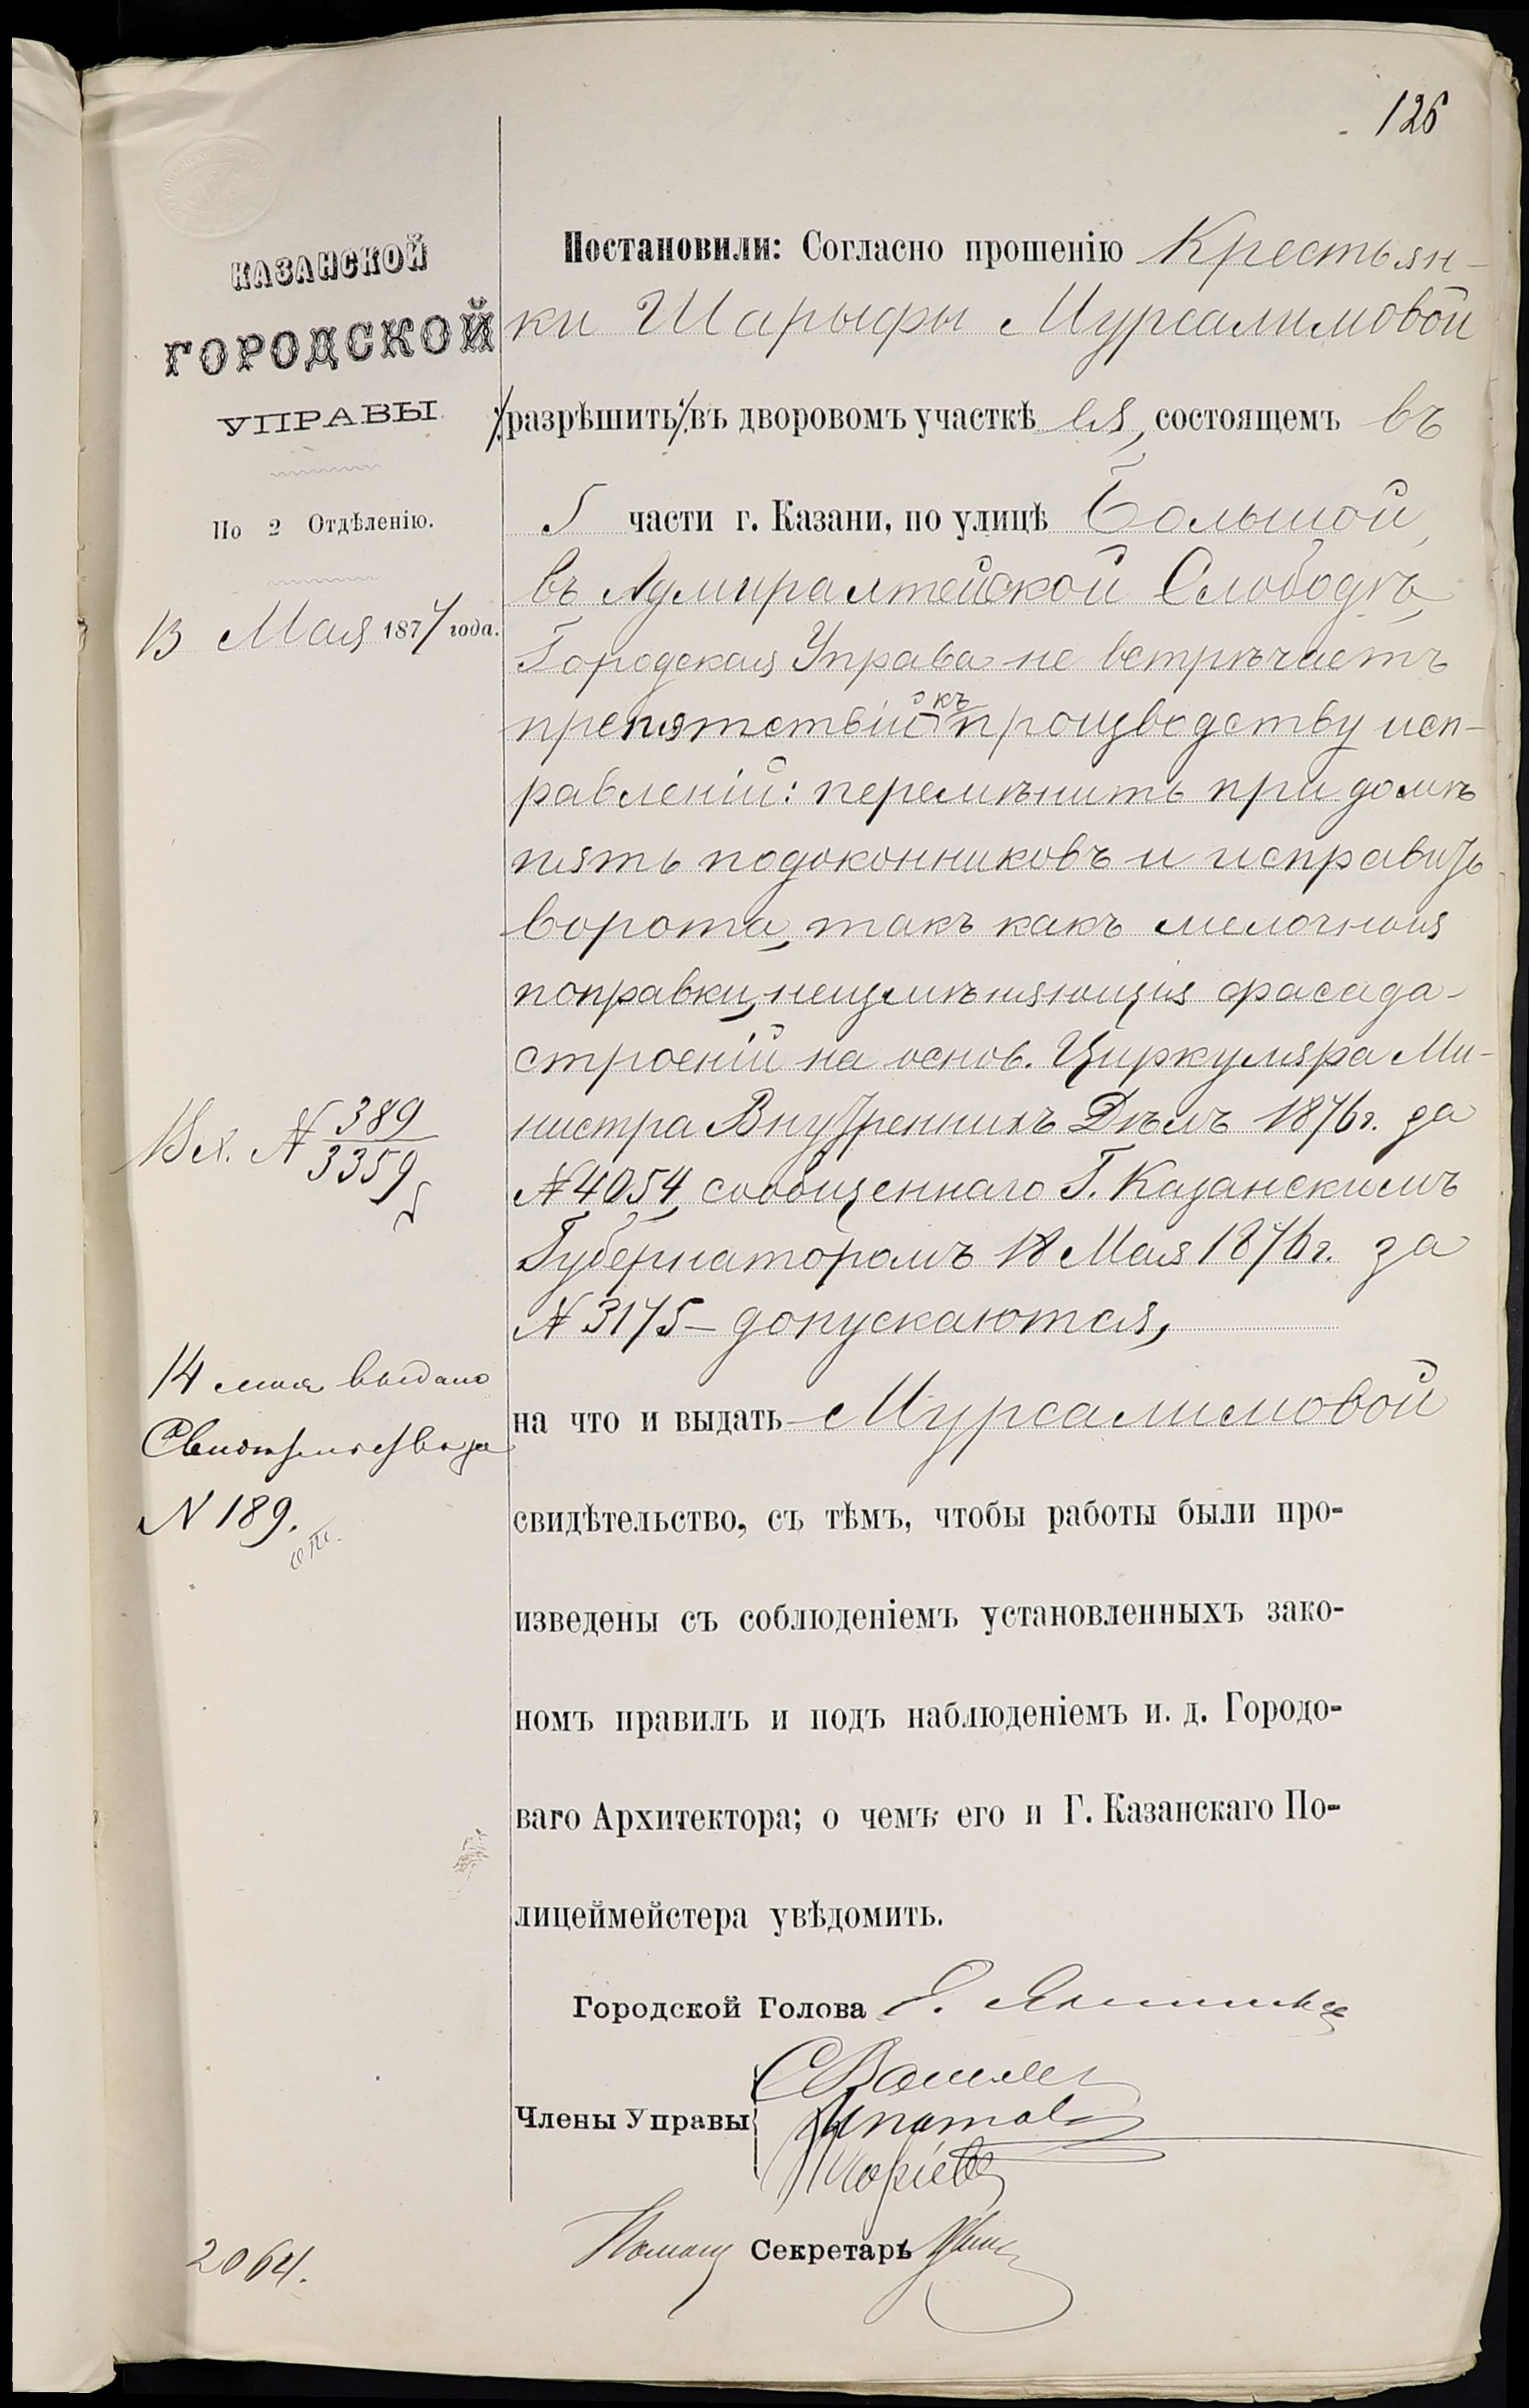 126
КАЗАНСКОЙ
ГОРОДСКОЙ
УПРАВЫ
По 2 Отдѣленію.
13 Мая 1877 года.
Вх. № 389
3359
14 мая выдано
Свидѣтельство за
№ 189.
2064.
Постановили: Согласно прошенію Крестьян-
ки Шарыфы Мурсалимовой
/:разрѣшить:/ въ дворовомъ участкѣ ея, состоящемъ въ
5 части г. Казани, по улицѣ Большой,
въ Адмиралтейской Слободѣ,
Городская Управа не встрѣчаетъ
препятствій къ производству исп-
равленій: перемѣнить при домѣ
пять подоконниковъ и исправить
ворота, такъ какъ мелочныя
поправки, неизмѣняющія фасада
строеній на основ. Циркуляра Ми-
нистра Внутреннихъ Дѣлъ 1876 г. за
№ 4054, сообщеннаго Г. Казанскимъ
Губернаторомъ 18 Мая 1876 г. за
№ 3175 – допускаются,
на что и выдать Мурсалимовой
свидѣтельство, съ тѣмъ, чтобы работы были про-
изведены съ соблюденіемъ установленныхъ зако-
номъ правилъ и подъ наблюденіемъ и. д. Городо-
ваго Архитектора; о чемъ его и Г. Казанскаго По-
лицеймейстера увѣдомить.
Городской Голова
Члены Управы
Помощ Секретарь